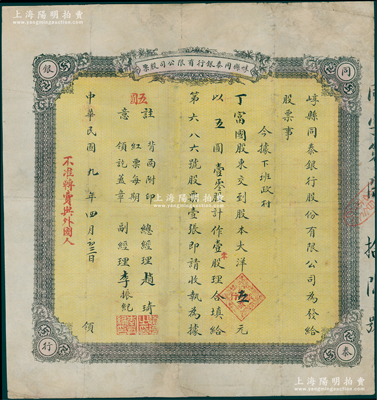 上海陽明拍賣
同
銀
行
泰
嶧縣同泰銀行有限公司股票
嶧縣同泰銀行股份有限公司為發給
股票事
今據下班政村
丁富國股東交到股本大洋五元
以五圓壹零股計作壹股理合填給
第六八六號股票壹張即請收執為據
註意
背面附印
紅票每期
領訖蓋章
總經理趙琦
副經理李振紀
中華民國九年四月初三日領
不准轉賣與外國人
上海陽明拍賣
www.ymauction.com